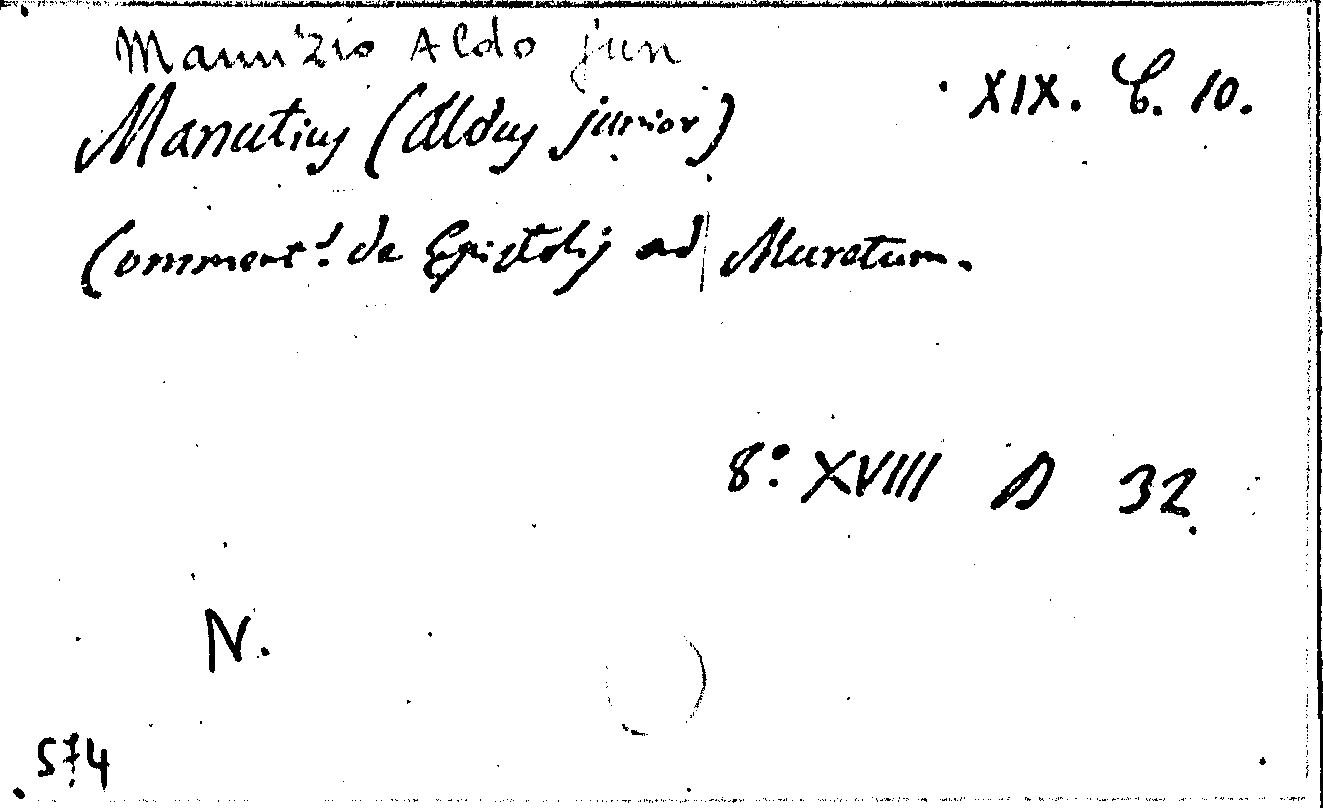 Manuzio Aldo jun
Manutius (Aldus junior)
XIX. C. 10.
Comment.s de Epistolis ad Muretum.
8.° XVIII D 32
N.
574